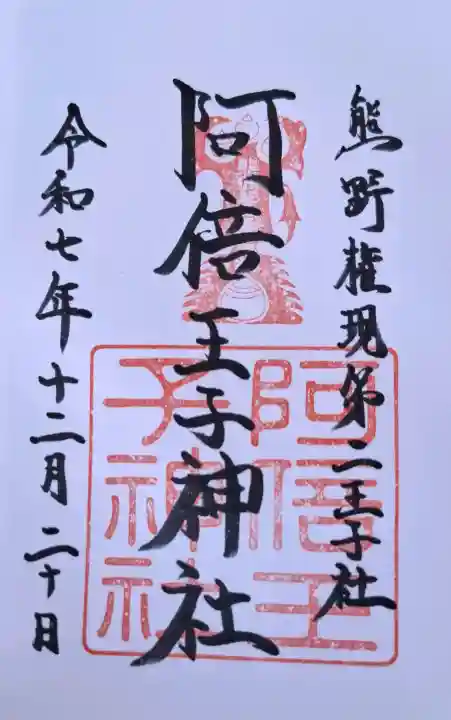 熊野権現第二王子社
阿倍王子神社
令和七年十二月二十日
阿倍王
子神社